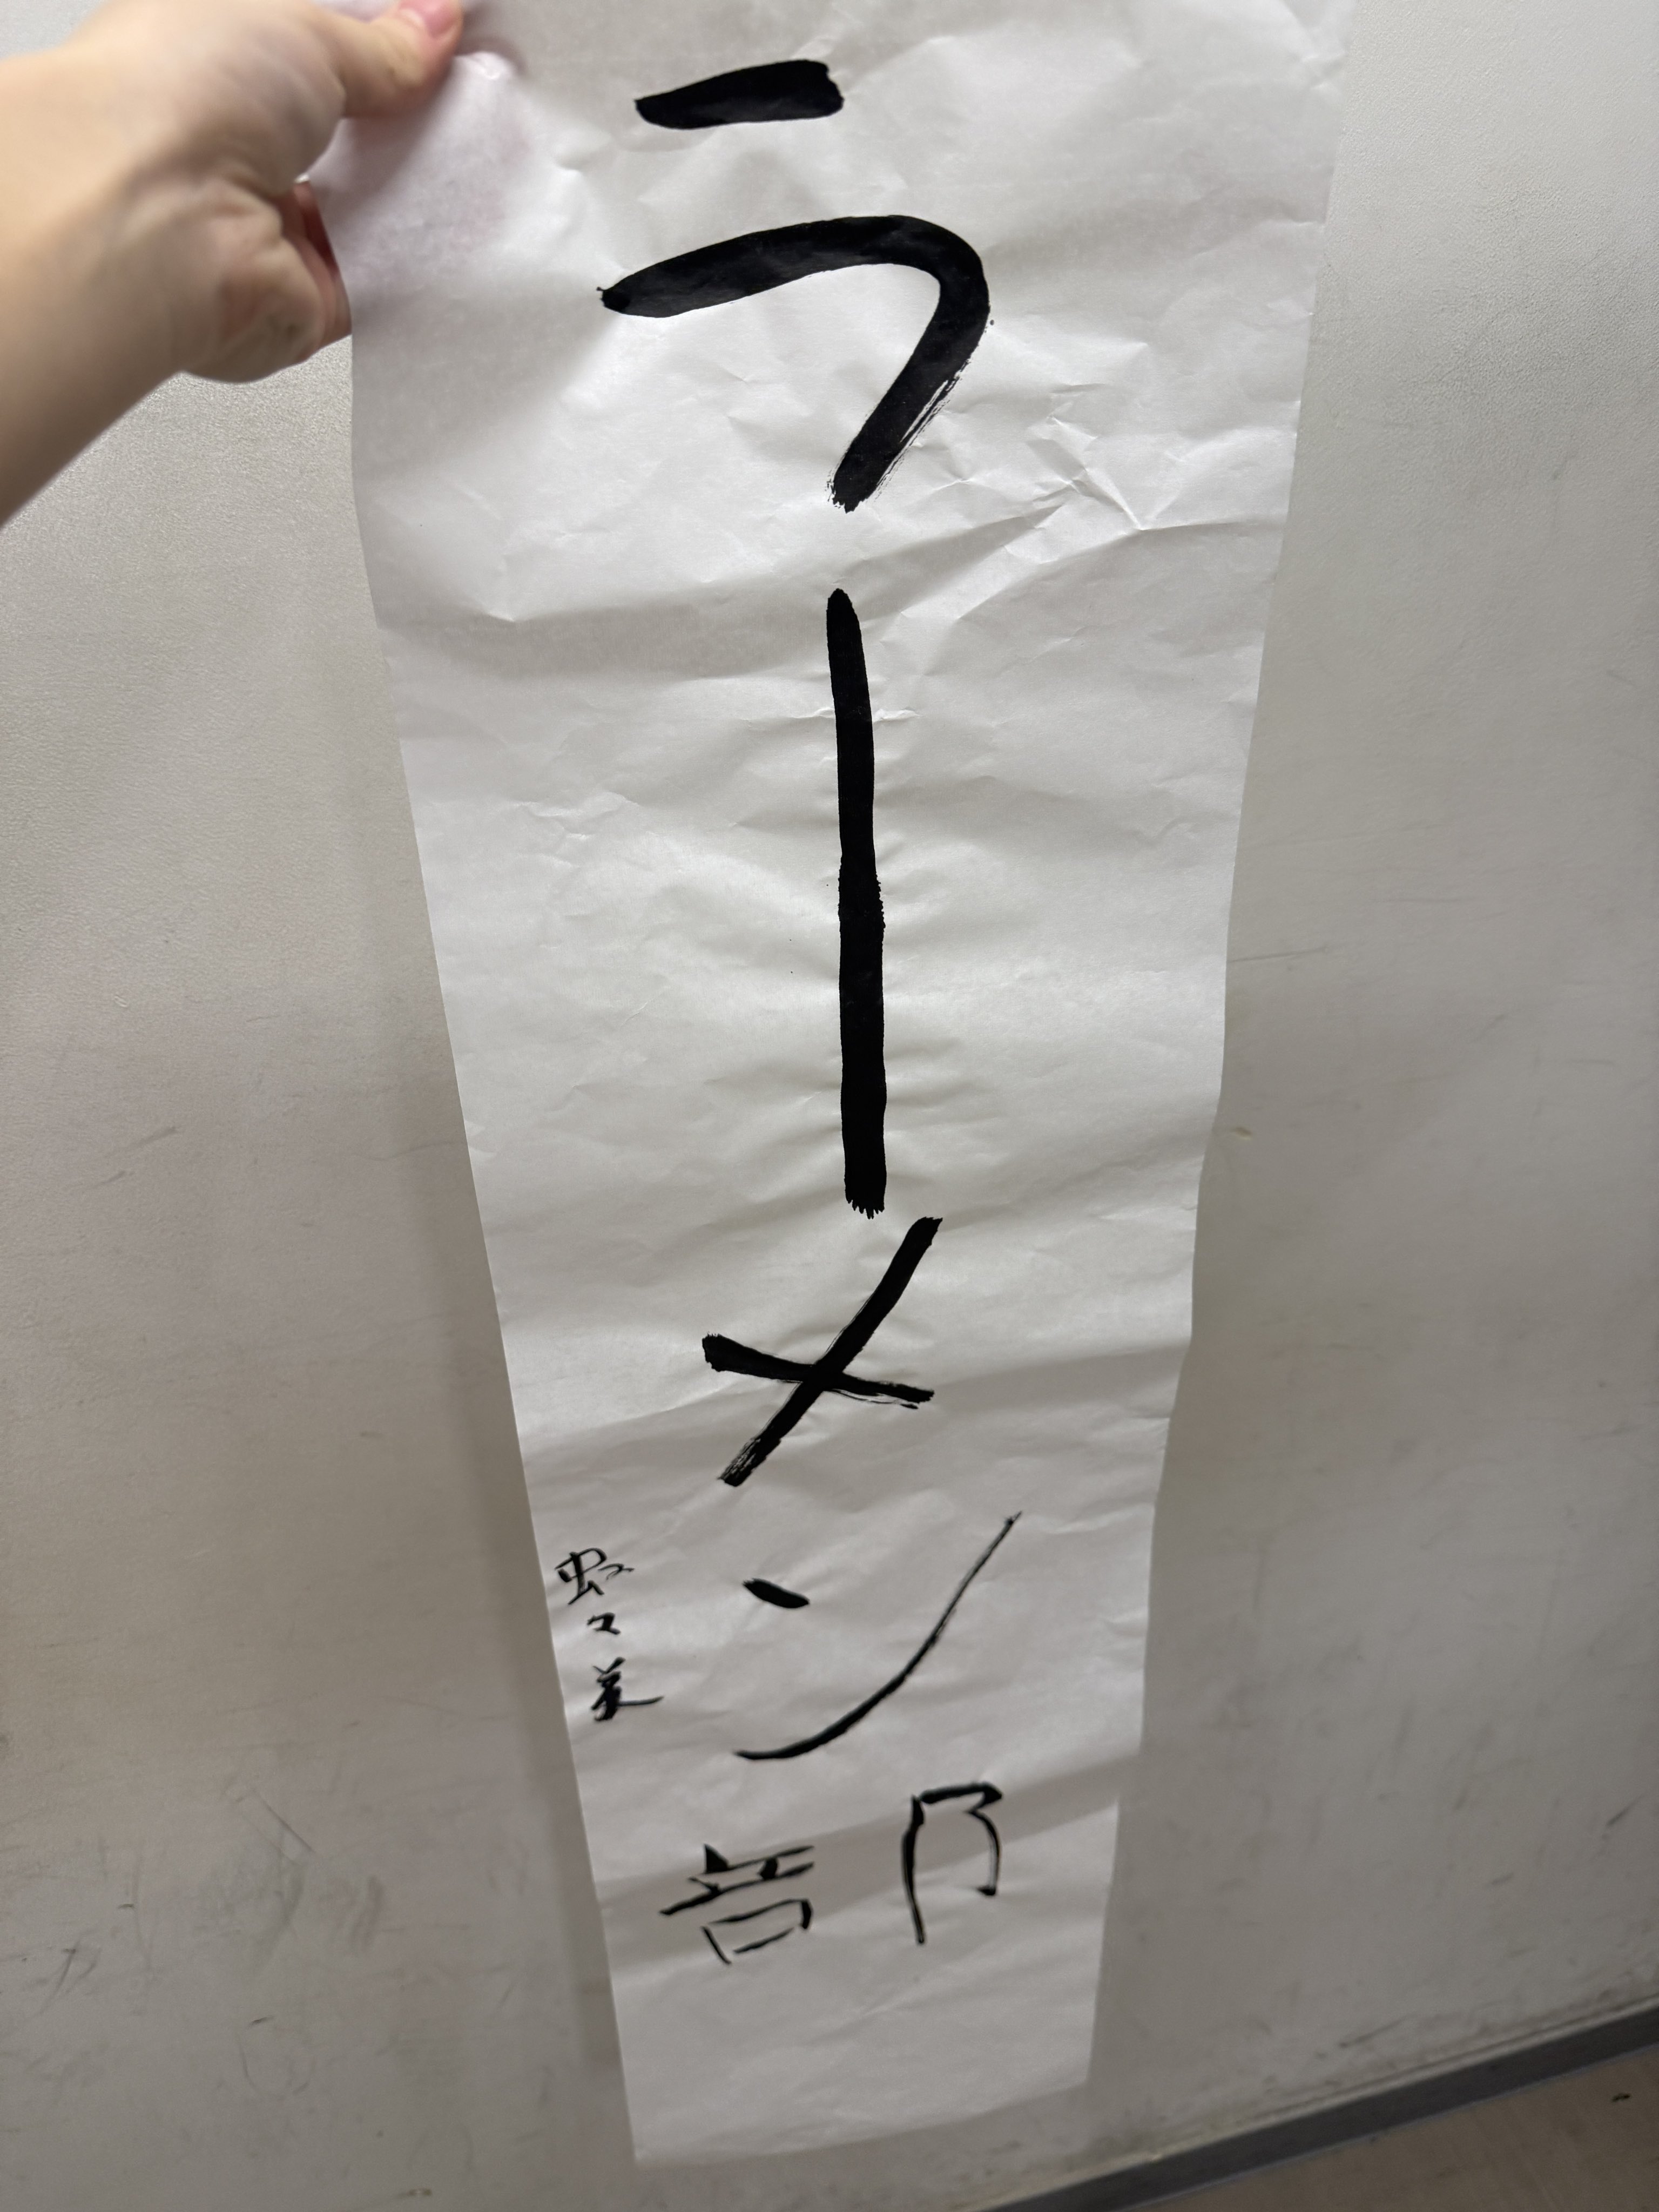 ラーメン部
虹々美